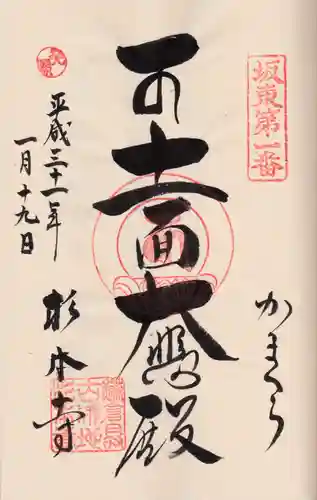 坂東第一番
かまくら
十一面大悲殿
平成三十一年
一月十九日
杉本寺